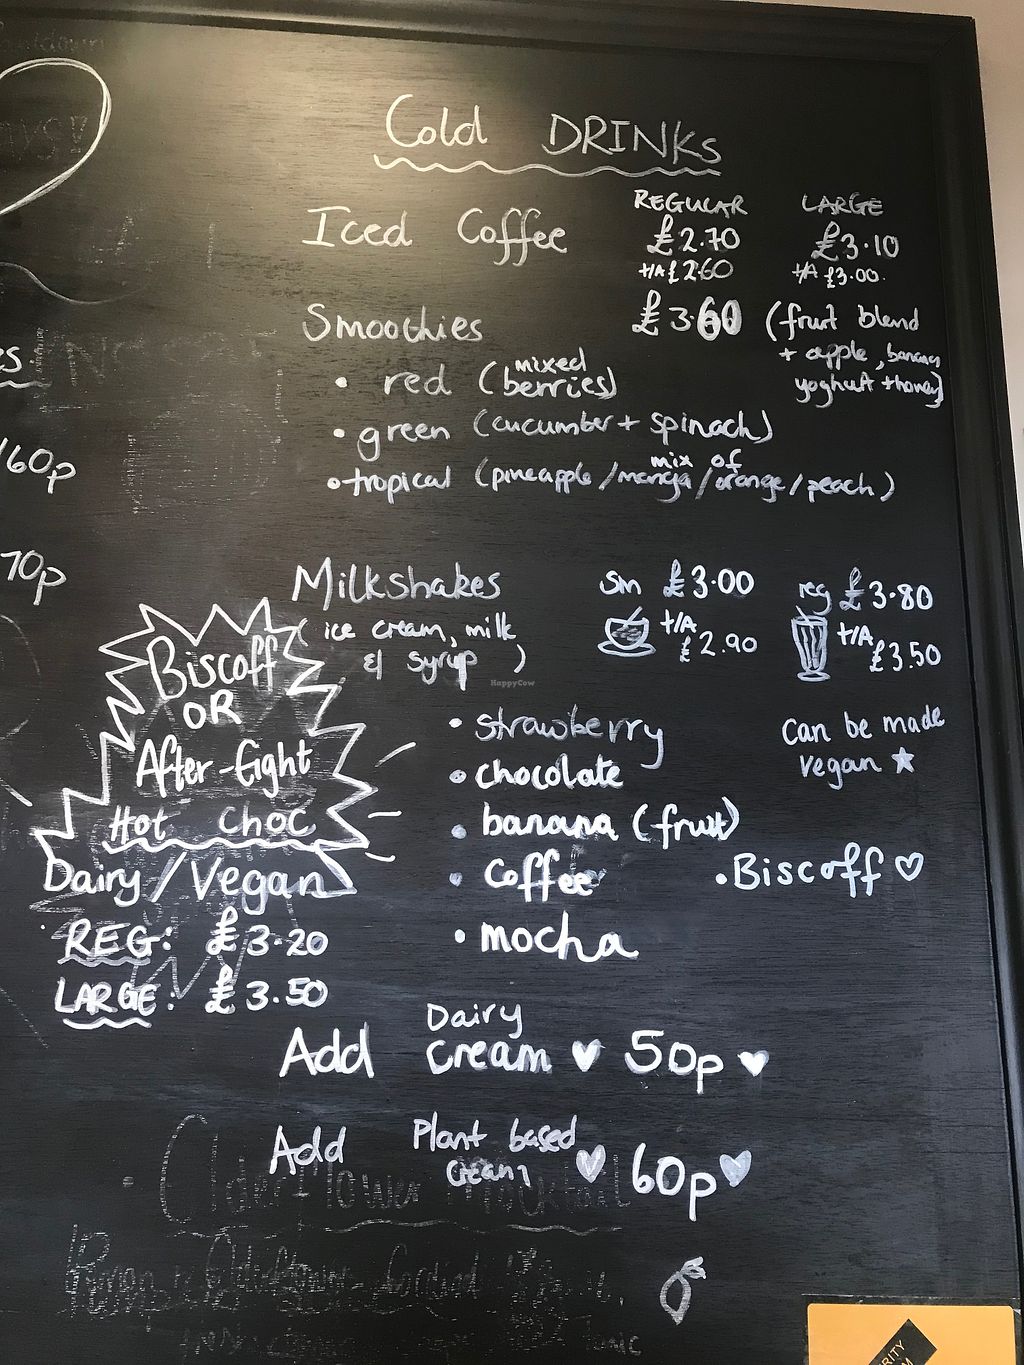 Cold DRINKs
REGULAR LARGE
Iced Coffee £2.70 £3.10
T/A £2.60 T/A £3.00
Smoothies £3.60 (fruit blend
+ apple, banana
yoghurt + honey)
• red (mixed berries)
• green (cucumber + spinach)
mix of
• tropical (pineapple/mango/orange/peach)
/60p
70p
Milkshakes sm £3.00 reg £3.80
(ice cream, milk T/A £2.90 T/A £3.50
& syrup)
HappyCow
• strawberry
• chocolate
• banana (fruit)
• coffee
• mocha
can be made
vegan
• Biscoff
Biscoff
OR
After-Eight
Hot Choc
Dairy/Vegan
REG: £3.20
LARGE: £3.50
Add Dairy Cream 50p
Add Plant based Cream 60p
Elderflower Mocktail